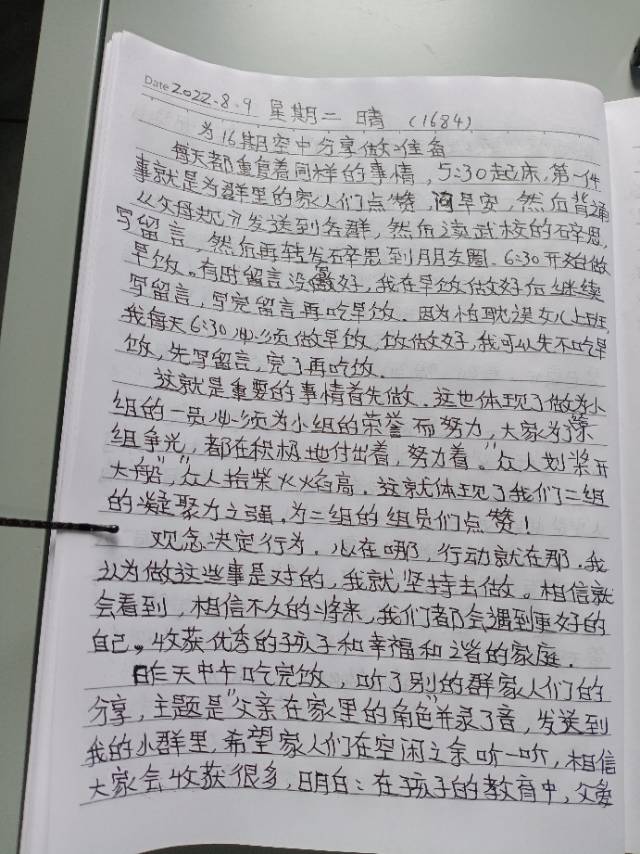 Date 2022.8.9 星期二 晴 (1684)
为16期空中分享做准备
每天都重复着同样的事情，5:30起床，第一件
事就是为群里的家人们点赞，问早安，然后背诵
《父母规》发送到各群，然后读武校的碎思，
写留言，然后再转发碎思到朋友圈。6:30开始做
早饭。有时留言没写好，我在早饭做好后继续
写留言，写完留言再吃早饭。因为怕耽误女儿上班，
我每天6:30必须做早饭，饭做好，我可以先不吃早
饭，先写留言，完了再吃饭。
这就是重要的事情首先做。这也体现了做为小
组的一员必须为小组的荣誉而努力，大家为了小
组争光，都在积极地付出着，努力着。"众人划桨开
大船"，"众人拾柴火焰高。这就体现了我们二组
的凝聚力之强，为二组的组员们点赞！
观念决定行为，心在哪，行动就在那。我
认为做这些事是对的，我就坚持去做。相信就
会看到，相信不久的将来，我们都会遇到更好的
自己。收获优秀的孩子和幸福和谐的家庭。
昨天中午吃完饭，听了别的群家人们的
分享，主题是"父亲在家里的角色"并录了音，发送到
我的小群里，希望家人们在空闲之余听一听，相信
大家会收获很多，明白：在孩子的教育中，父亲